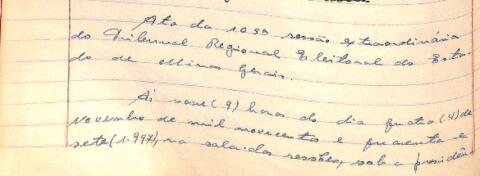 Ata da 105ª sessão extraordinária
do Tribunal Regional Eleitoral do Esta-
do de Minas Gerais.
Às nove (9) horas do dia quatro (4) de
novembro de mil novecentos e quarenta e
sete (1.947), na sala das sessões, sob a presidên-